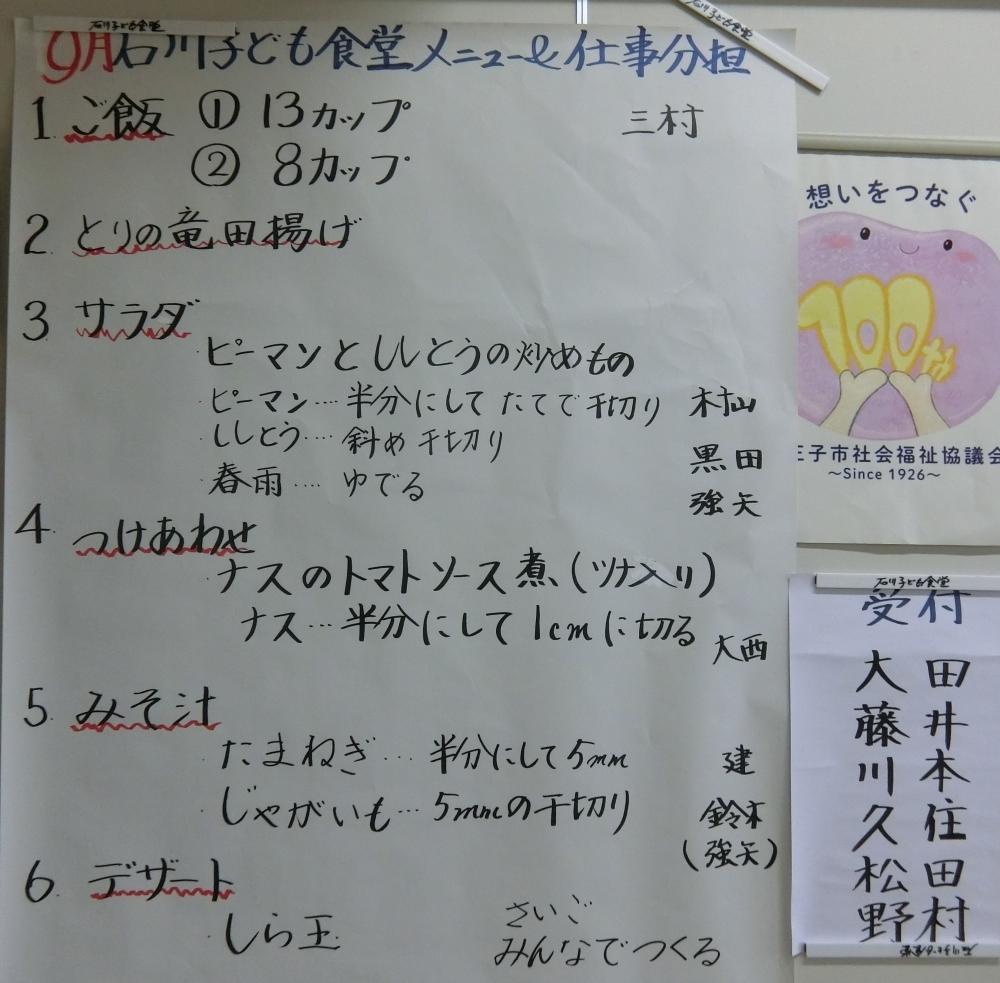 石川子ども食堂
9月石川子ども食堂メニュー&仕事分担
1 ご飯 ① 13カップ 三村
② 8カップ
2 とりの竜田揚げ
3 サラダ
・ピーマンとししとうの炒めもの
・ピーマン…半分にしてたてで千切り 村山
・ししとう…斜め千切り 黒田
・春雨…ゆでる 強矢
4. つけあわせ
・ナスのトマトソース煮(ツナ入り)
ナス…半分にして1cmに切る 大西
5 みそ汁
・たまねぎ…半分にして5mm 建
・じゃがいも…5mmの千切り 鈴木
(強矢)
6. デザート
・しら玉 さいご
みんなでつくる
石川子ども食堂
想いをつなぐ
100th
王子市社会福祉協議会
〜Since 1926〜
石川子ども食堂
受付
大田
藤井
川本
久住
松田
野村
石川子ども食堂